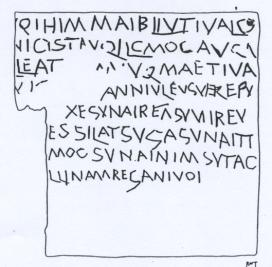 QIHIMMAIBLIVTIVALCS
NICISTAVQILCMOCAVCA
LEAT AVVQMAETIVA
ANNIVLEVSVEREPV
XESVNAIREVSVNIREV
ESSILATSVGASVNAITI
MOCSVNAINIMSVTAC
LLINAMREGANIVOI
RSOT